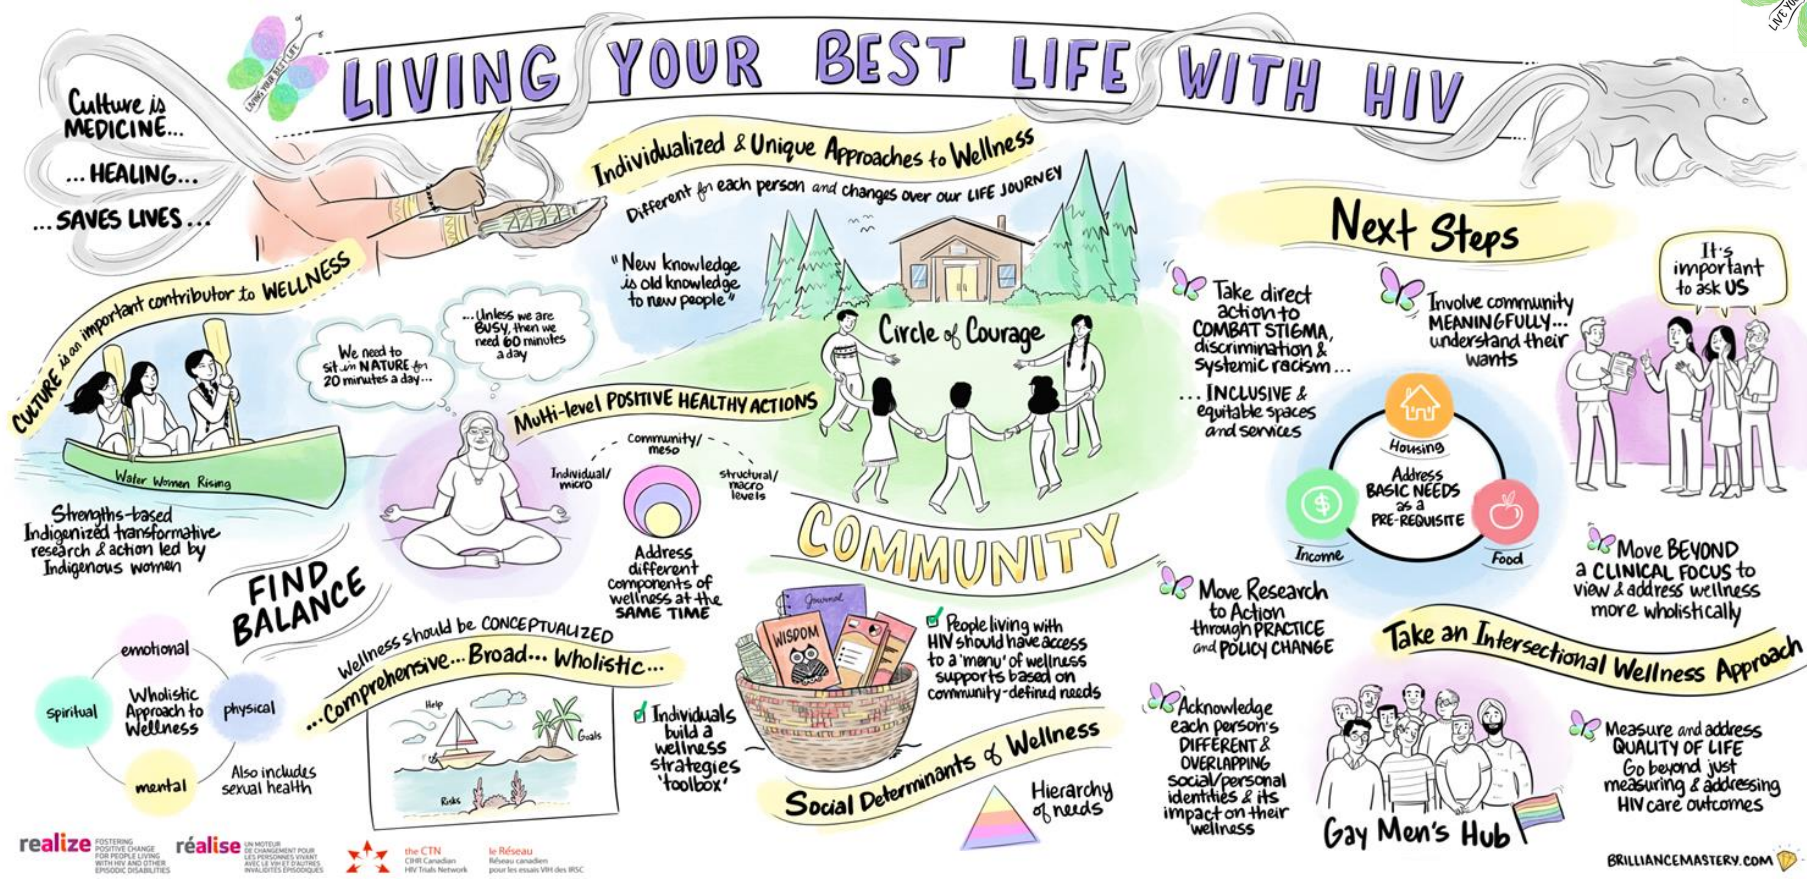 LIVING YOUR BEST LIFE WITH HIV
LIVING YOUR BEST LIFE
LIVE YOU
Culture is
MEDICINE...
... HEALING...
... SAVES LIVES ...
CULTURE is an important contributor to WELLNESS
Water Women Rising
Strengths-based
Indigenized transformative
research & action led by
Indigenous women
We need to
sit in NATURE for
20 minutes a day...
...Unless we are
BUSY, then we
need 60 minutes
a day
FIND
BALANCE
emotional
spiritual
Wholistic
Approach to
Wellness
physical
mental
Also includes
sexual health
Individualized & Unique Approaches to Wellness
Different for each person and changes over our LIFE JOURNEY
"New knowledge
is old knowledge
to new people"
Circle of Courage
Multi-level POSITIVE HEALTHY ACTIONS
Community/
meso
Individual/
micro
Structural/
macro
levels
Address
different
components of
wellness at the
SAME TIME
COMMUNITY
Wellness should be CONCEPTUALIZED
...Comprehensive... Broad... Wholistic...
Help
Goals
Risks
Individuals
build a
wellness
strategies
'toolbox'
Journal
WISDOM
People living with
HIV should have access
to a 'menu' of wellness
supports based on
community-defined needs
Social Determinants of Wellness
Hierarchy
of needs
Next Steps
Take direct
action to
COMBAT STIGMA,
discrimination &
systemic racism...
... INCLUSIVE &
equitable spaces
and services
Involve community
MEANINGFULLY...
understand their
wants
It's
important
to ask US
Housing
Address
BASIC NEEDS
as a
PRE-REQUISITE
$
Income
Food
Move Research
to Action
through PRACTICE
and POLICY CHANGE
Move BEYOND
a CLINICAL FOCUS to
view & address wellness
more wholistically
Take an Intersectional Wellness Approach
Acknowledge
each person's
DIFFERENT &
OVERLAPPING
social/personal
identities & its
impact on their
wellness
Gay Men's Hub
Measure and address
QUALITY OF LIFE
Go beyond just
measuring & addressing
HIV care outcomes
realize
FOSTERING
POSITIVE CHANGE
FOR PEOPLE LIVING
WITH HIV AND OTHER
EPISODIC DISABILITIES
réalise
UN MOTEUR
DE CHANGEMENT POUR
LES PERSONNES VIVANT
AVEC LE VIH ET D'AUTRES
INVALIDITÉS ÉPISODIQUES
the CTN
CIHR Canadian
HIV Trials Network
le Réseau
Réseau canadien
pour les essais VIH des IRSC
BRILLIANCEMASTERY.COM